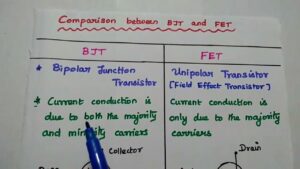 Comparison between BJT and FET
BJT
FET
* Bipolar Junction
Transistor
Unipolar Transistor
[Field Effect Transistor)
* Current conduction is
due to both the majority
and minority carriers
Current conduction is
only due to the majority
carriers
Collector
Drain